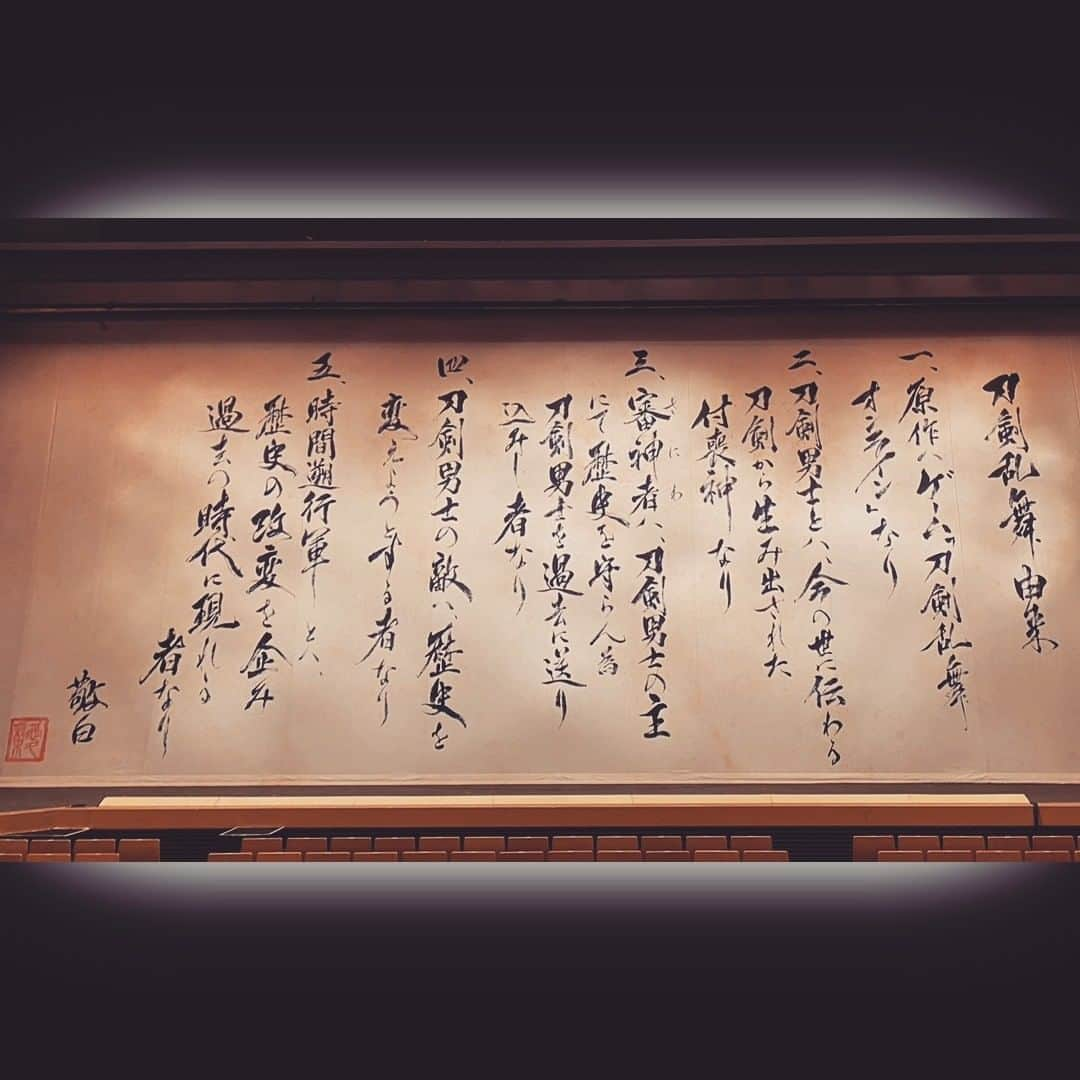 刀剣乱舞 由来
一、原作ハゲーム「刀剣乱舞
オンライン」なり
二、刀剣男士とハ、今の世に伝わる
刀剣から生み出された
付喪神なり
三、審神者ハ、刀剣男士の主
さにわ
にて歴史を守らん為
刀剣男士を過去に送り
込みし者なり
四、刀剣男士の敵ハ歴史を
変えようとする者なり
五、時間遡行軍とハ、
歴史の改変を企み
過去の時代に現れる
者なり
敬白